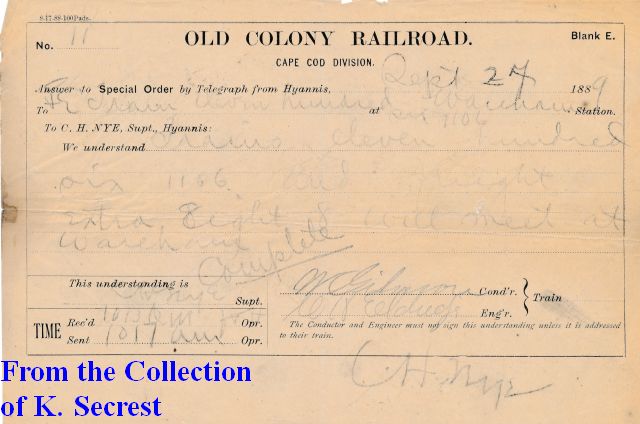 8-17-88-100 Pads.
No. 11 OLD COLONY RAILROAD. Blank E.
CAPE COD DIVISION.
Sept 27 1889
Answer to Special Order by Telegraph from Hyannis,
To Train Eleven hundred six 1106 at Wareham Station.
To C. H. NYE, Supt., Hyannis:
We understand Trains Eleven hundred
six 1106 and freight
extra Eight 8 will meet at
Wareham
Complete
This understanding is
C H Nye Supt.
TIME Rec'd Opr.
Sent 1017 am Opr.
Cond'r.
Eng'r.
Train
The Conductor and Engineer must not sign this understanding unless it is addressed
to their train.
C H Nye
From the Collection
of K. Secrest